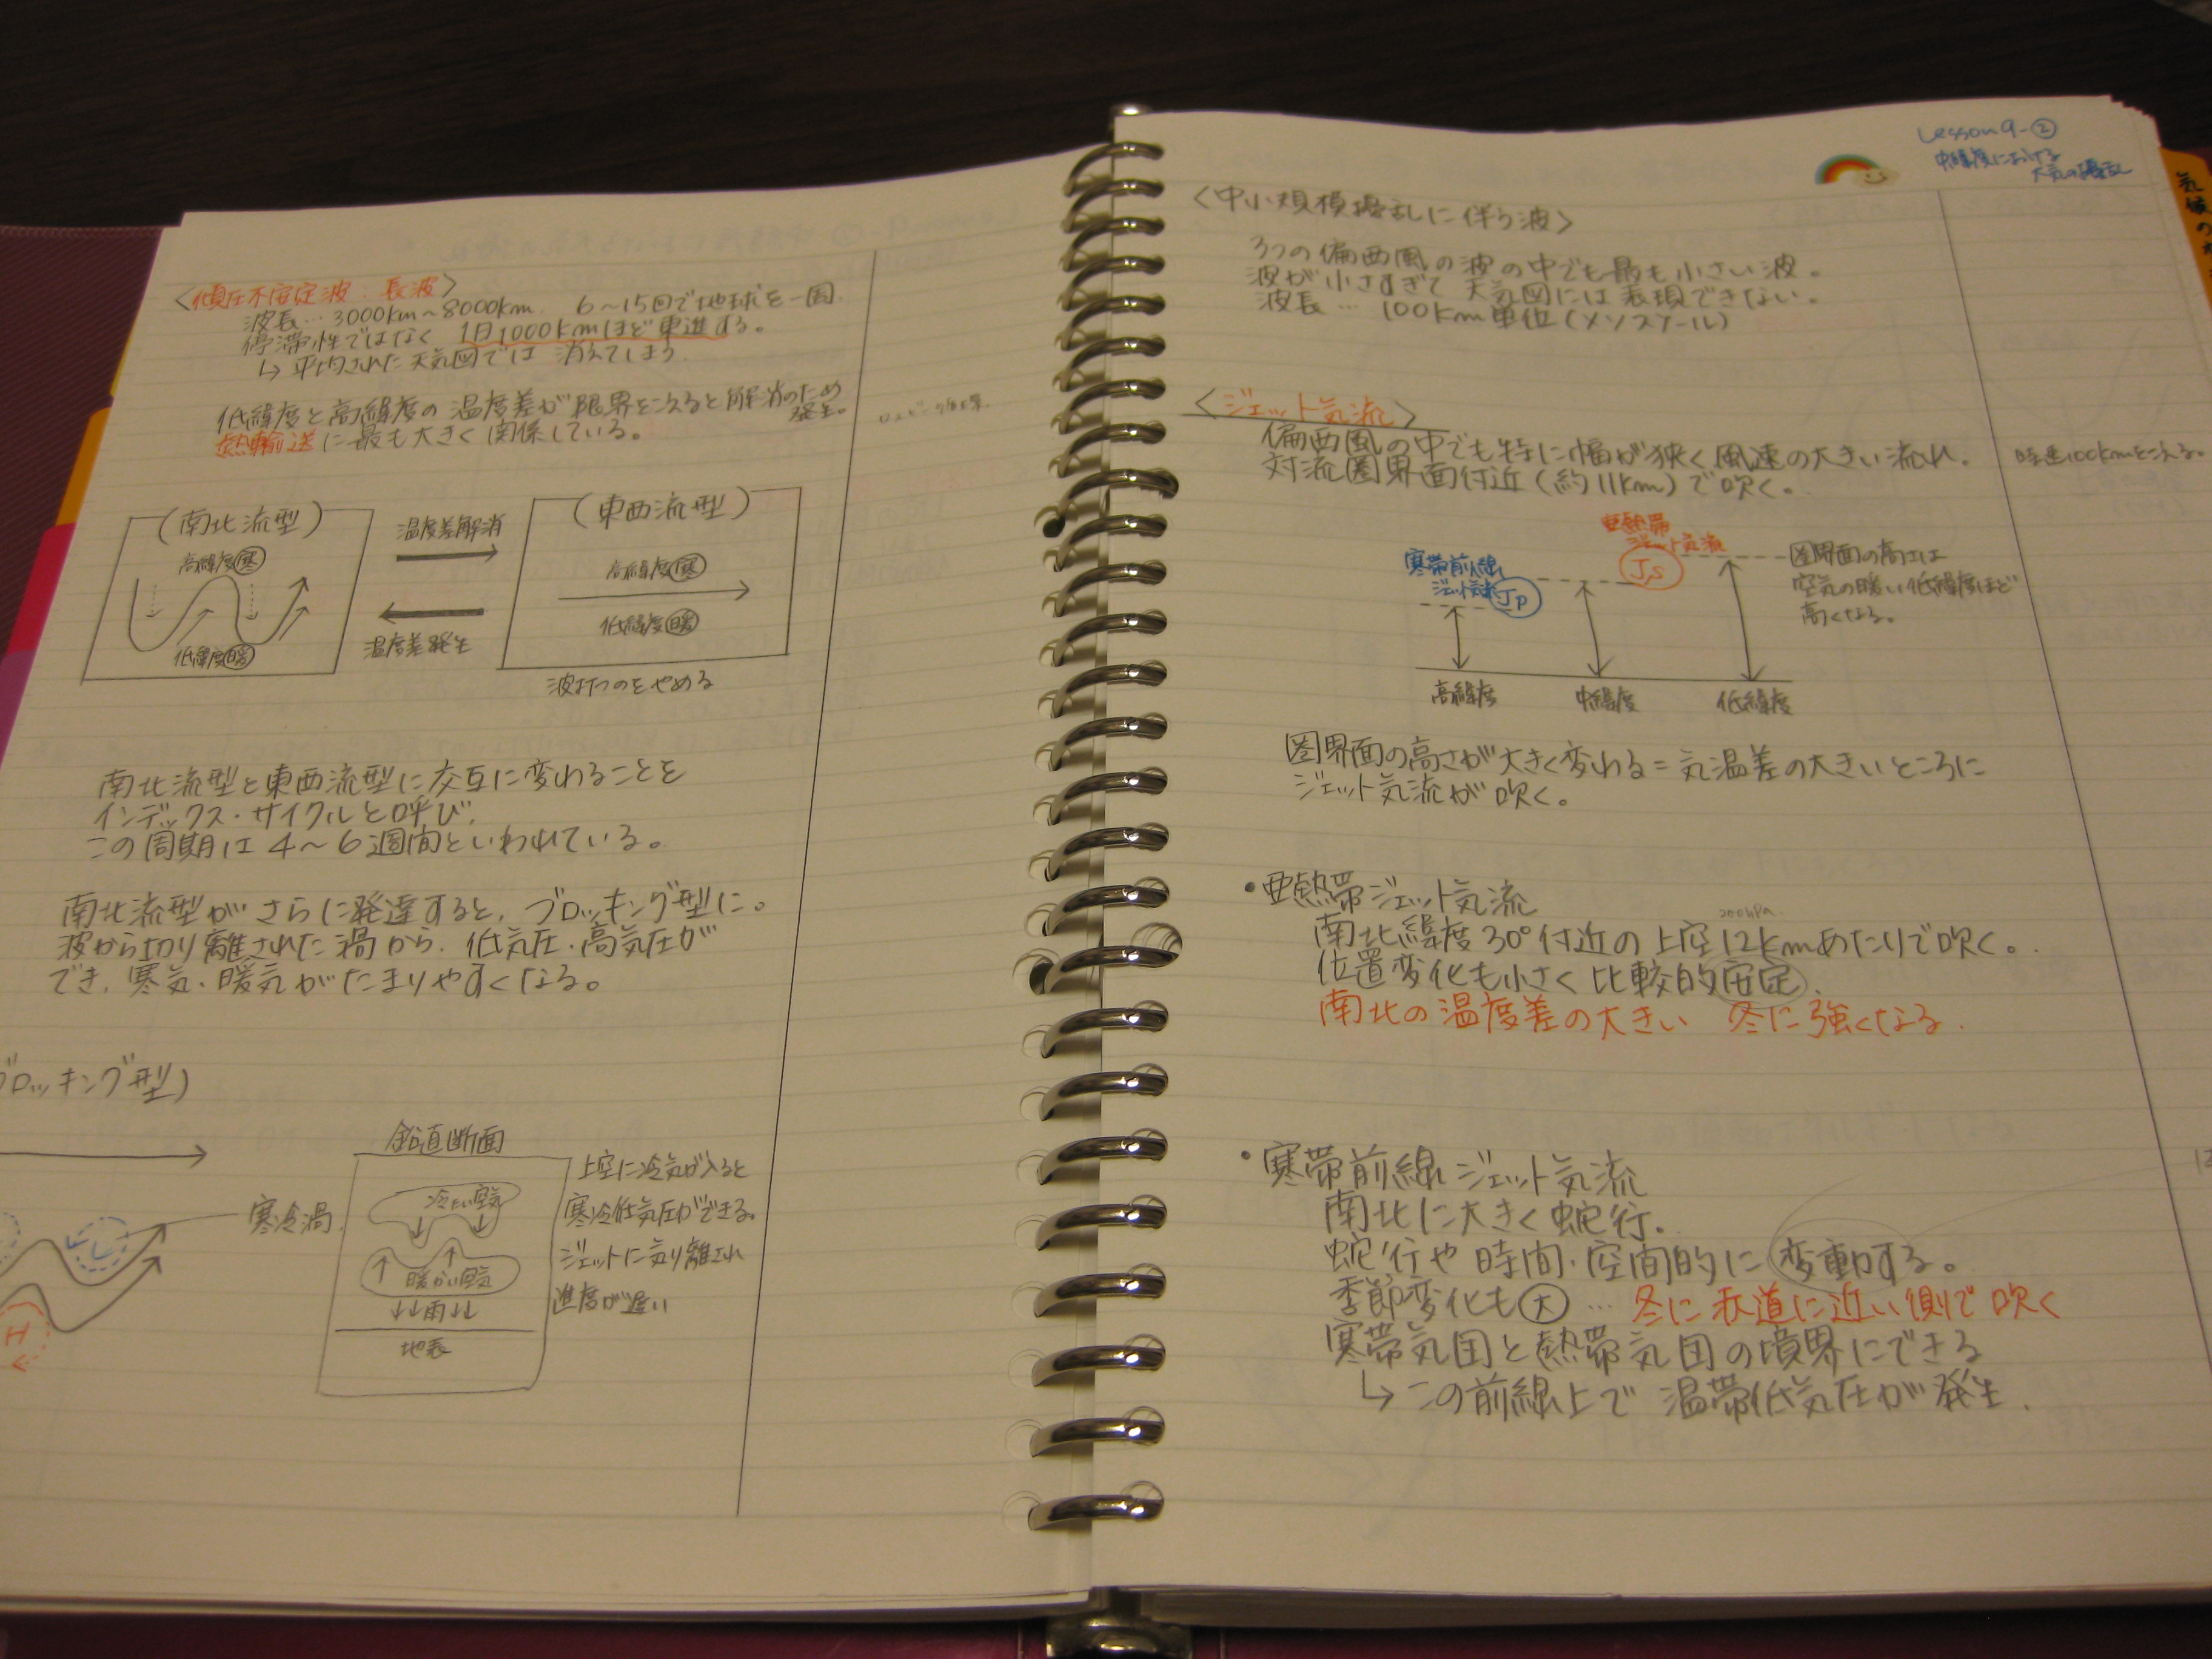 <傾圧不安定波・長波>
波長…3000km〜8000km. 6〜15回で地球を一周.
停滞性ではなく 1日1000kmほど東進する。
↳ 平均された天気図では 消えてしまう.
低緯度と高緯度の温度差が限界をこえると解消のため
発生。
熱輸送に最も大きく関係している。
(南北流型)
高緯度(寒)
低緯度(暖)
温度差解消
温度差発生
(東西流型)
高緯度(寒)
低緯度(暖)
波打つのをやめる
南北流型と東西流型に交互に変わることを
インデックス・サイクルと呼び,
この周期は4〜6週間といわれている。
南北流型がさらに発達すると, ブロッキング型に。
波から切り離された渦から, 低気圧・高気圧が
でき, 寒気・暖気がたまりやすくなる。
ブロッキング型)
L
H
寒冷渦
鉛直断面
冷たい空気
暖かい空気
↓↓雨↓↓
地表
上空に冷気が入ると
寒冷低気圧ができる。
ジェットに気り離され
進度が遅い
Lesson9-②
中緯度における
大気の擾乱
気候の
<中小規模擾乱に伴う波>
3つの偏西風の波の中でも最も小さい波。
波が小さすぎて 天気図には表現できない。
波長… 100km単位(メソスケール)
<ジェット気流>
偏西風の中でも特に幅が狭く風速の大きい流れ。
時速100kmをこえる。
対流圏界面付近(約11km)で吹く。
寒帯前線
ジェット気流
Jp
亜熱帯
ジェット気流
Js
圏界面の高さは
空気の暖い低緯度ほど
高くなる。
高緯度
中緯度
低緯度
圏界面の高さが大きく変わる=気温差の大きいところに
ジェット気流が吹く。
・亜熱帯ジェット気流
200hPa
南北緯度30°付近の上空12kmあたりで吹く。
位置変化も小さく比較的安定.
南北の温度差の大きい 冬に強くなる.
・寒帯前線ジェット気流
南北に大きく蛇行.
蛇行や時間・空間的に変動する。
季節変化も(大)… 冬に赤道に近い側で吹く
寒帯気団と熱帯気団の境界にできる
↳ この前線上で 温帯低気圧が発生.